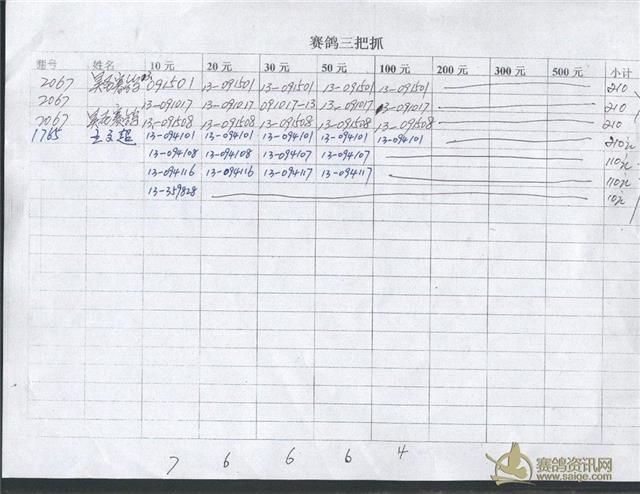 赛鸽三把抓
棚号 姓名 10元 20元 30元 50元 100元 200元 300元 500元 小计
2067 赛鸽 091501 13-091501 13-091501 13-091501 13-091501 210
2067 13-091017 13-091017 091017-13 13-091017 13-091017 210
2067 赛鸽 13-091508 13-091508 13-091508 13-091508 13-091508 210
1765 王文超 13-094101 13-094101 13-094101 13-094101 13-094101 210元
13-094108 13-094108 13-094107 13-094107 110元
13-094116 13-094116 13-094117 13-094117 110元
13-359828 10元
7 6 6 6 4
赛鸽资讯网
www.saige.com